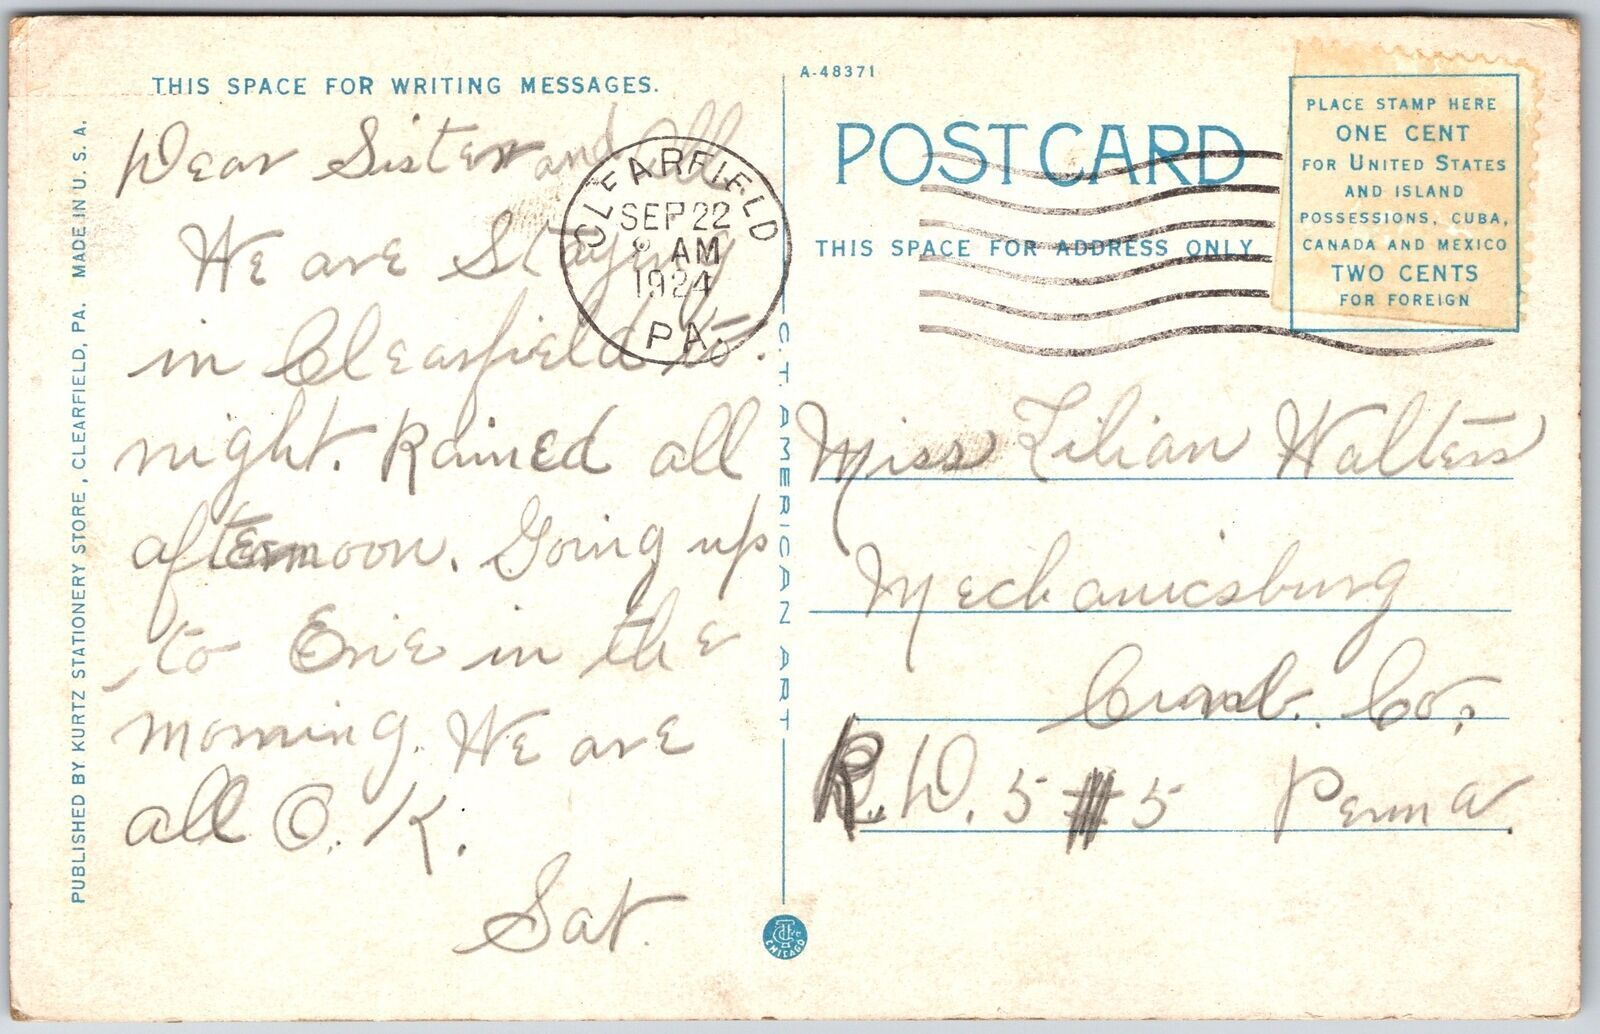 THIS SPACE FOR WRITING MESSAGES.
Dear Sister and All
We are Staying
in Clearfield to
night. Rained all
afternoon. Going up
to Erie in the
morning. We are
all O. K.
Sat.
PUBLISHED BY KURTZ STATIONERY STORE, CLEARFIELD, PA. MADE IN U.S.A.
CLEARFIELD
SEP 22
8 AM
1924
PA.
C.T. AMERICAN ART
CHICAGO
A-48371
POST CARD
THIS SPACE FOR ADDRESS ONLY
PLACE STAMP HERE
ONE CENT
FOR UNITED STATES
AND ISLAND
POSSESSIONS, CUBA,
CANADA AND MEXICO
TWO CENTS
FOR FOREIGN
Miss Lilian Walters
Mechanicsburg
Cumb. Co.,
R. D. 5 # 5 Penna.